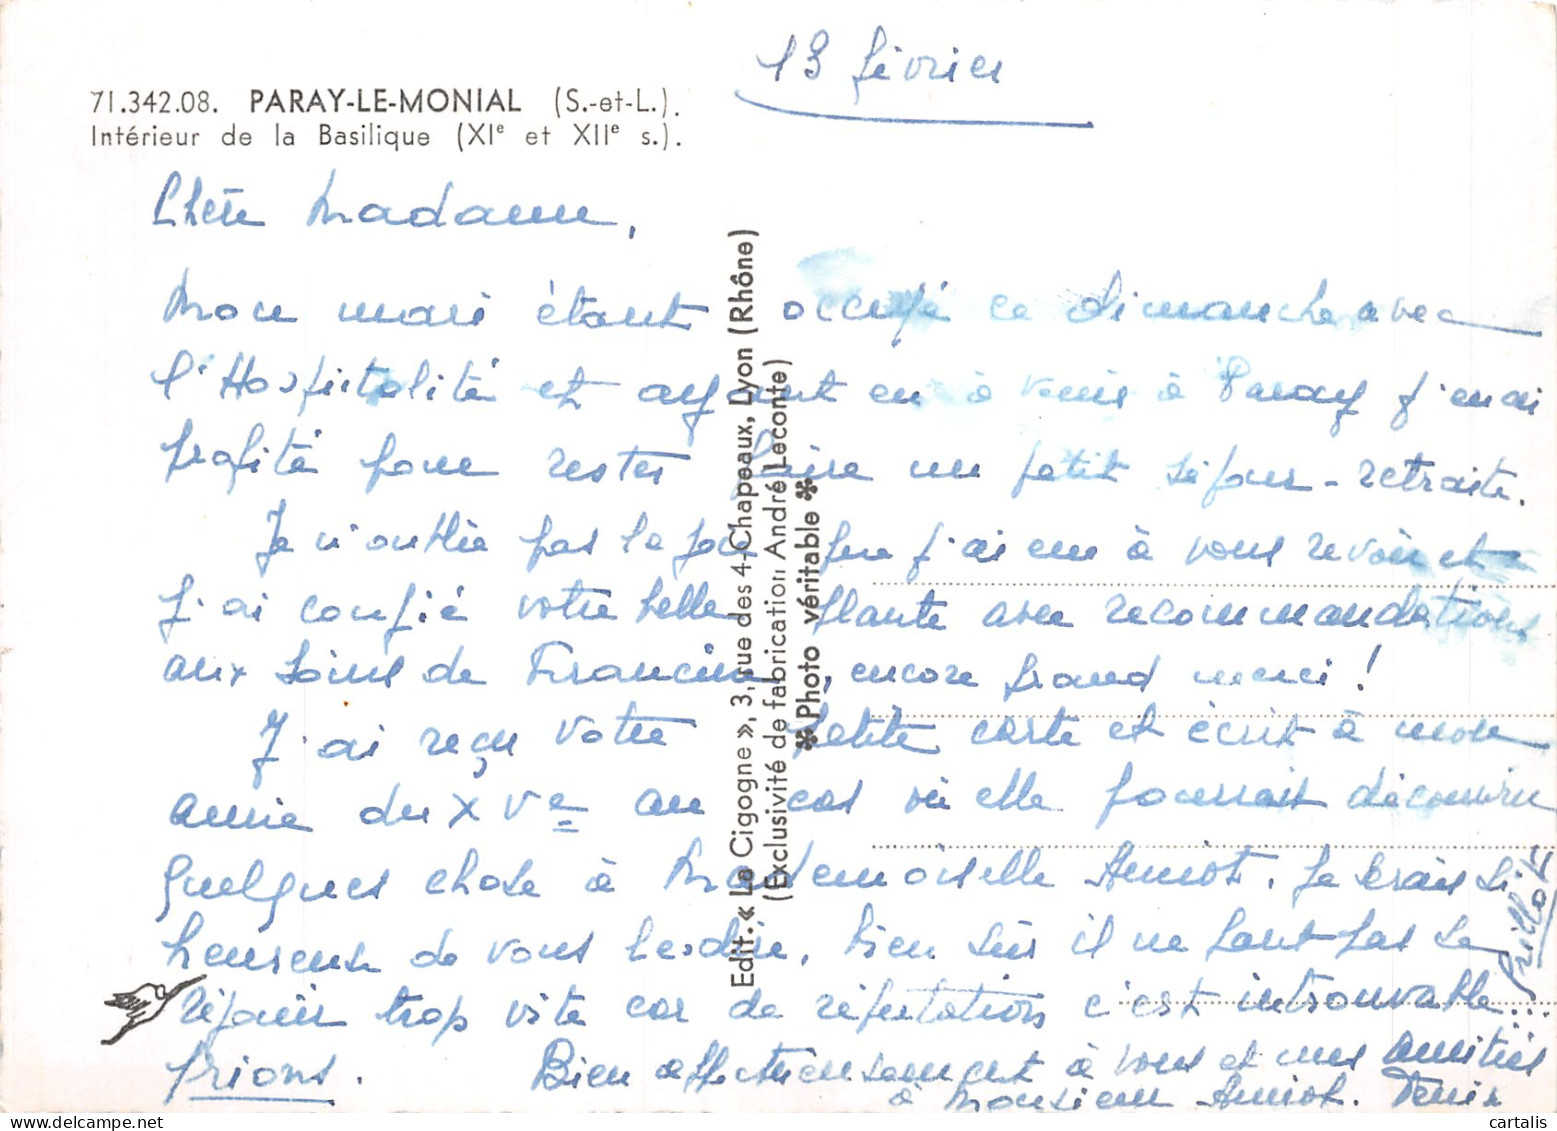 13 février
71.342.08. PARAY-LE-MONIAL (S.-et-L.).
Intérieur de la Basilique (XIe et XIIe s.).
Chère Madame,
Mon mari étant occupé ce dimanche avec
l'Hospitalité et ayant eu à venir à Paray j'en ai
profité pour rester faire un petit séjour-retraite.
Je n'oublie pas la joie que j'ai eue à vous revoir et
j'ai confié votre belle plante avec recommandations
aux soins de Francine, encore grand merci !
J'ai reçu votre petite carte et écrit à mon
amie du XVe au cas où elle pourrait découvrir
quelques chose à Mademoiselle Amiot. Je serais si
heureuse de vous le dire, bien sûr il ne faut pas se
réjouir trop vite car de réputation c'est introuvable...
prions. Bien affectueusement à vous et mes amitiés
à Monsieur Amiot. Denise
Edit. « La Cigogne », 3, rue des 4-Chapeaux, Lyon (Rhône)
(Exclusivité de fabrication André Leconte)
✻ Photo véritable ✻
cartalis